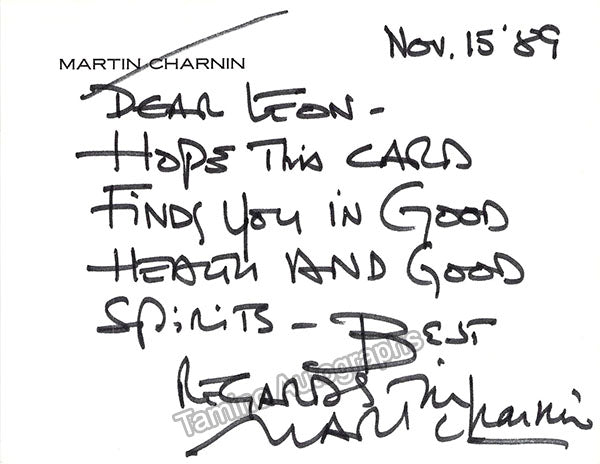 Nov. 15 '89
MARTIN CHARNIN
DEAR LEON -
HOPE This CARD
FINDS YOU IN GOOD
HEALTH AND GOOD
SPIRITS - BEST
REGARDS
MARTIN Charnin
Tamino Autographs